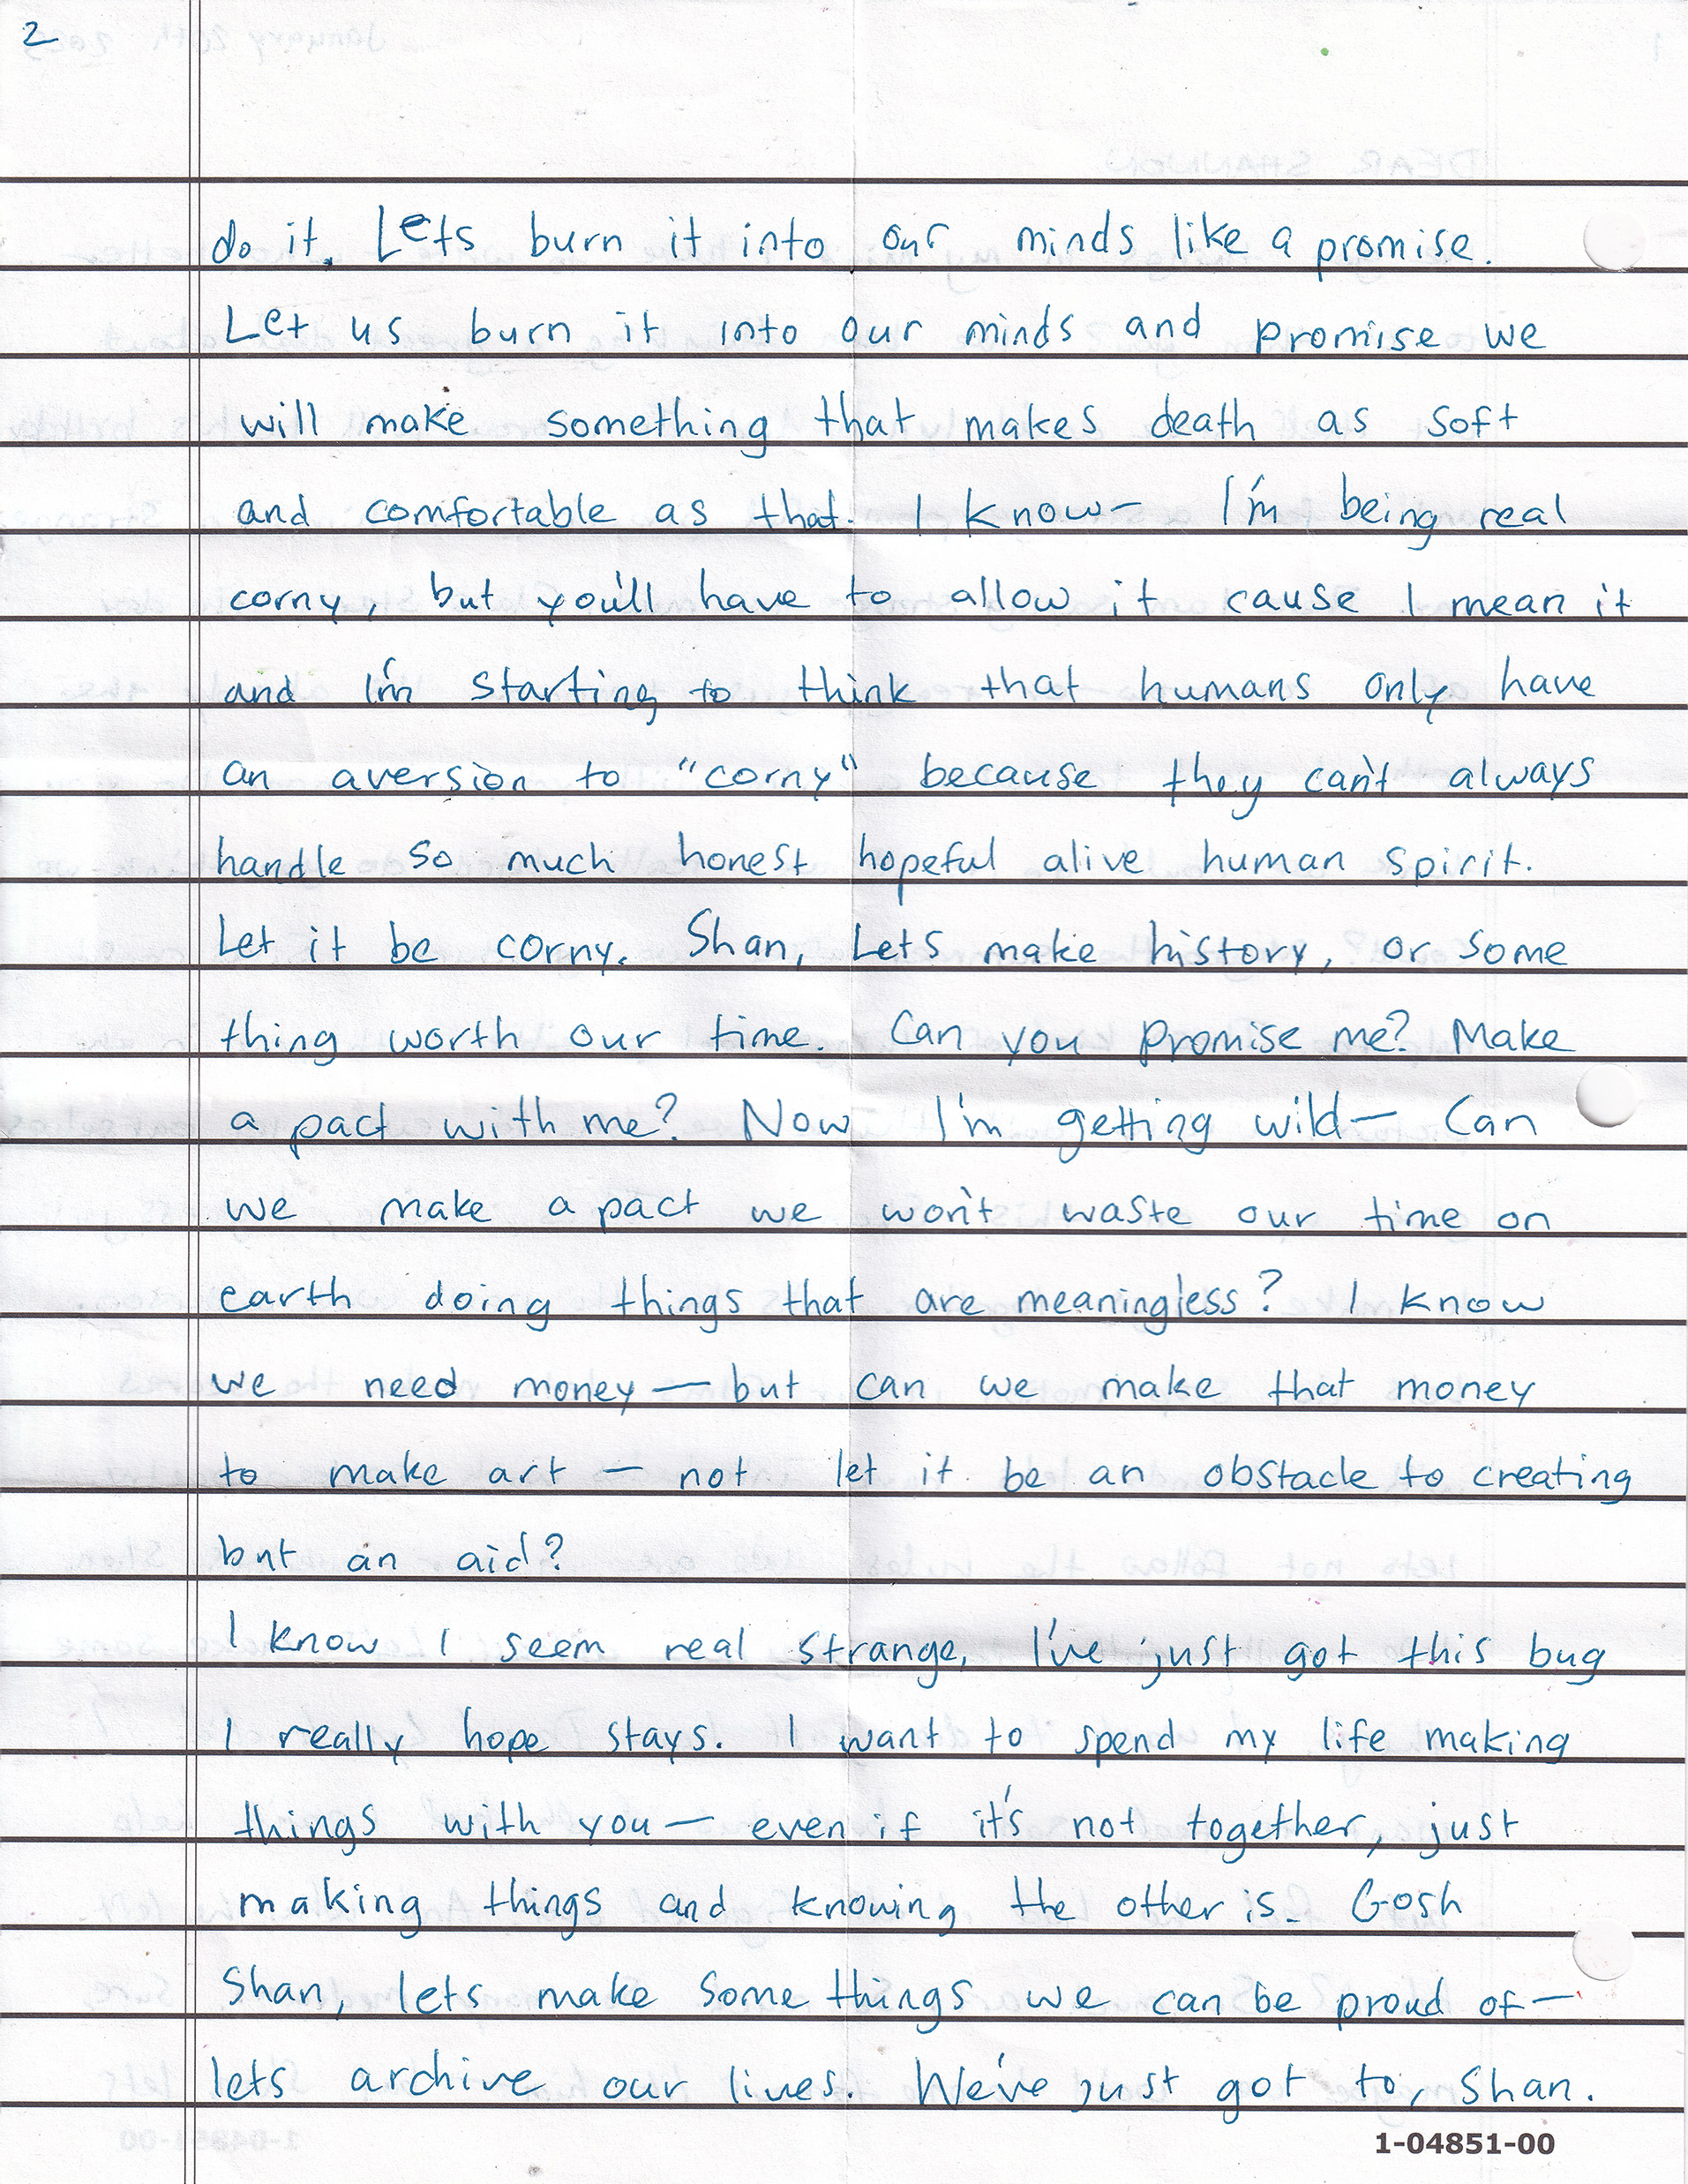 2
do it. Lets burn it into our minds like a promise.
Let us burn it into our minds and promise we
will make something that makes death as soft
and comfortable as that. I know— I'm being real
corny, but you'll have to allow it cause I mean it
and I'm starting to think that humans only have
an aversion to "corny" because they can't always
handle so much honest hopeful alive human spirit.
Let it be corny. Shan, Lets make history, or some
thing worth our time. Can you promise me? Make
a pact with me? Now I'm getting wild— Can
we make a pact we won't waste our time on
earth doing things that are meaningless? I know
we need money — but can we make that money
to make art — not let it be an obstacle to creating
but an aid?
I know I seem real strange, I've just got this bug
I really hope stays. I want to spend my life making
things with you — even if it's not together, just
making things and knowing the other is. Gosh
Shan, lets make some things we can be proud of—
lets archive our lives. We've just got to, Shan.
1-04851-00